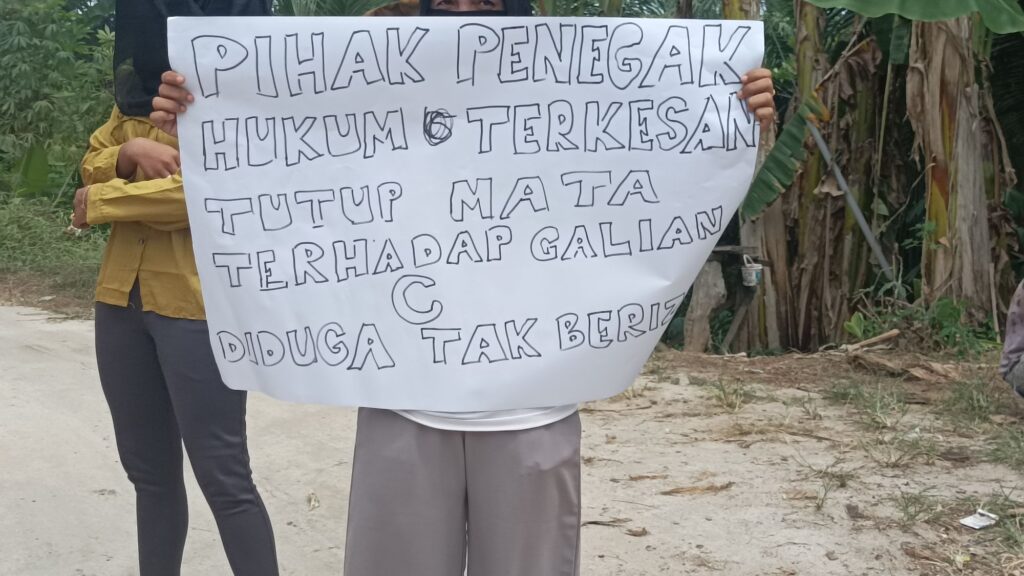 PIHAK PENEGAK
HUKUM TERKESAN
TUTUP MATA
TERHADAP GALIAN
C
DIDUGA TAK BERIZ